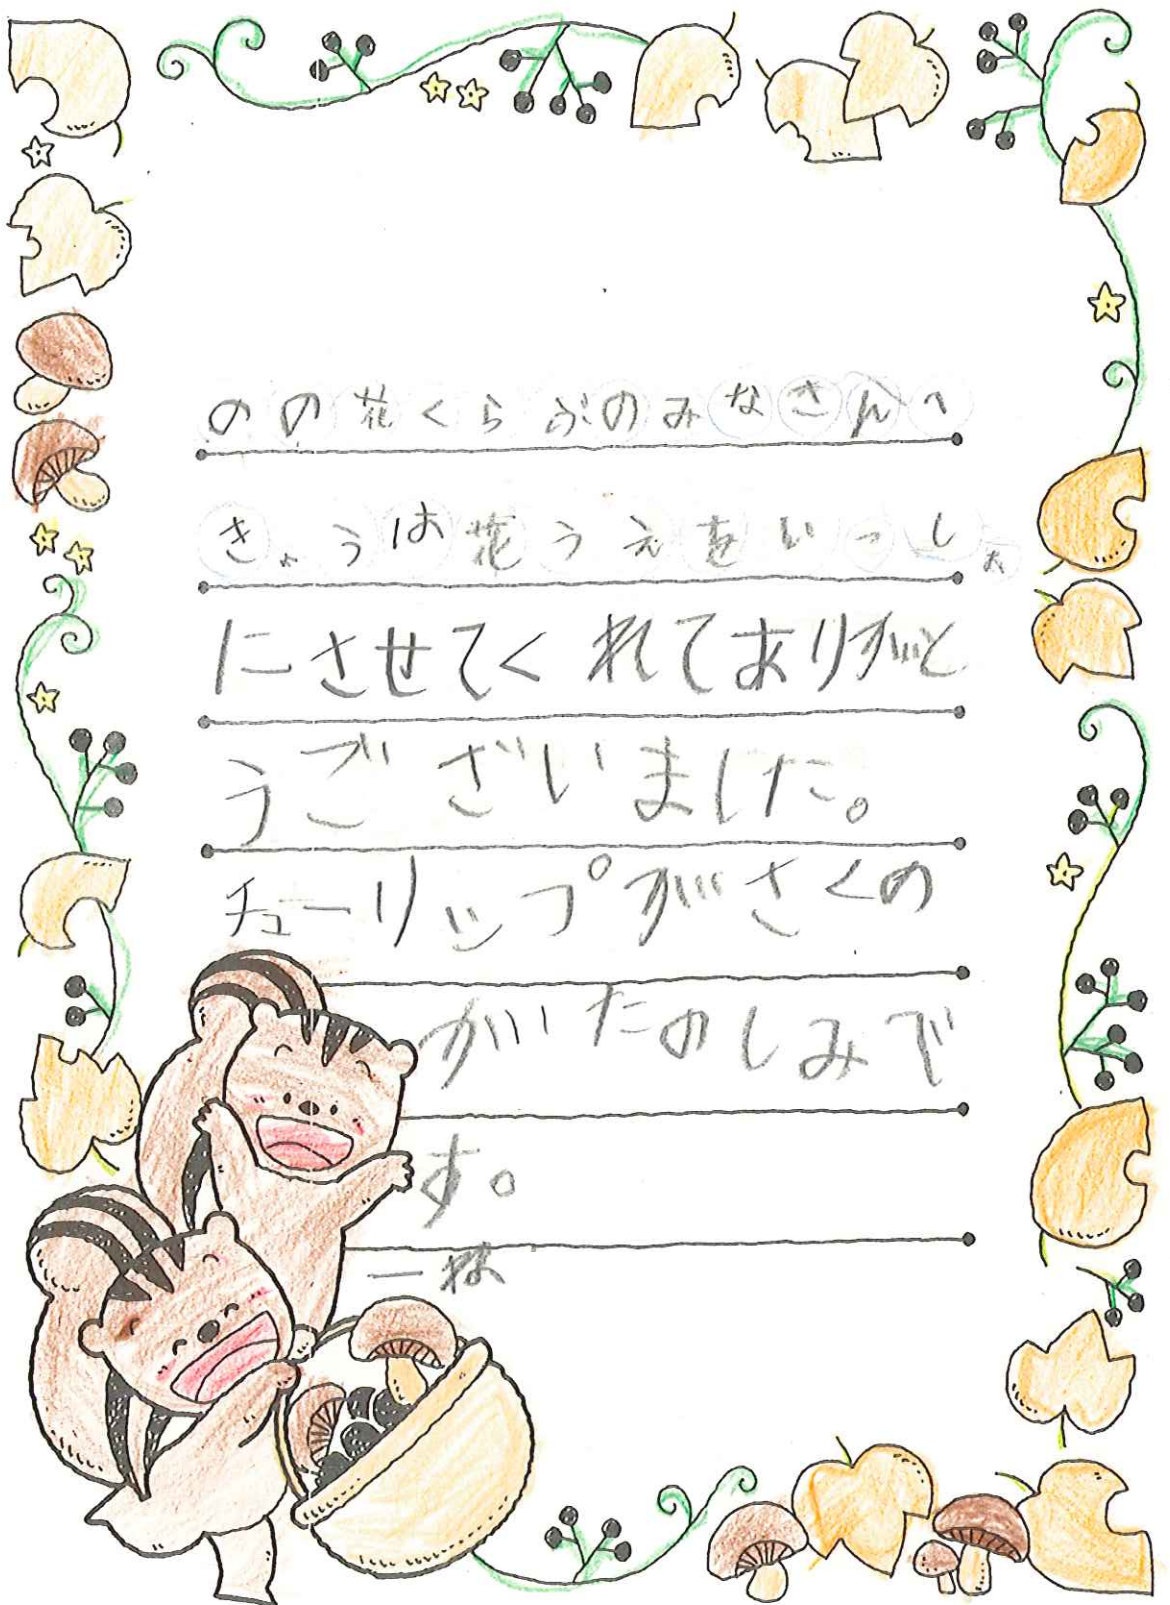 のの花くらぶのみなさんへ
きょうは花うえをいっしょ
にさせてくれてありがと
うございました。
チューリップがさくの
がたのしみで
す。